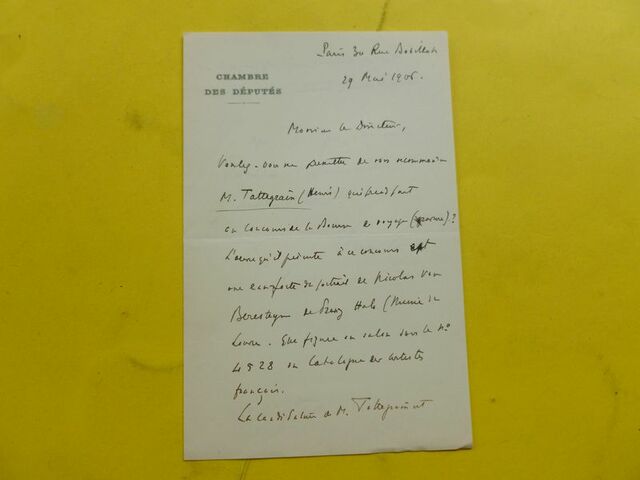 CHAMBRE
DES DÉPUTÉS
Paris 30 Rue
29 Mai 1906.
Monsieur le Directeur,
Voulez-vous me permettre de vous recommander
M. Tattegrain (Henri) qui prend part
au concours de la Bourse de voyage (gravure)?
L'œuvre qu'il présente à ce concours est
une eau forte du portrait de Nicolas Van
Beresteyn de Franz Hals (Musée du
Louvre. Elle figure au salon sous le No
4528 au Catalogue des artistes
français.
La candidature de M. Tattegrain est